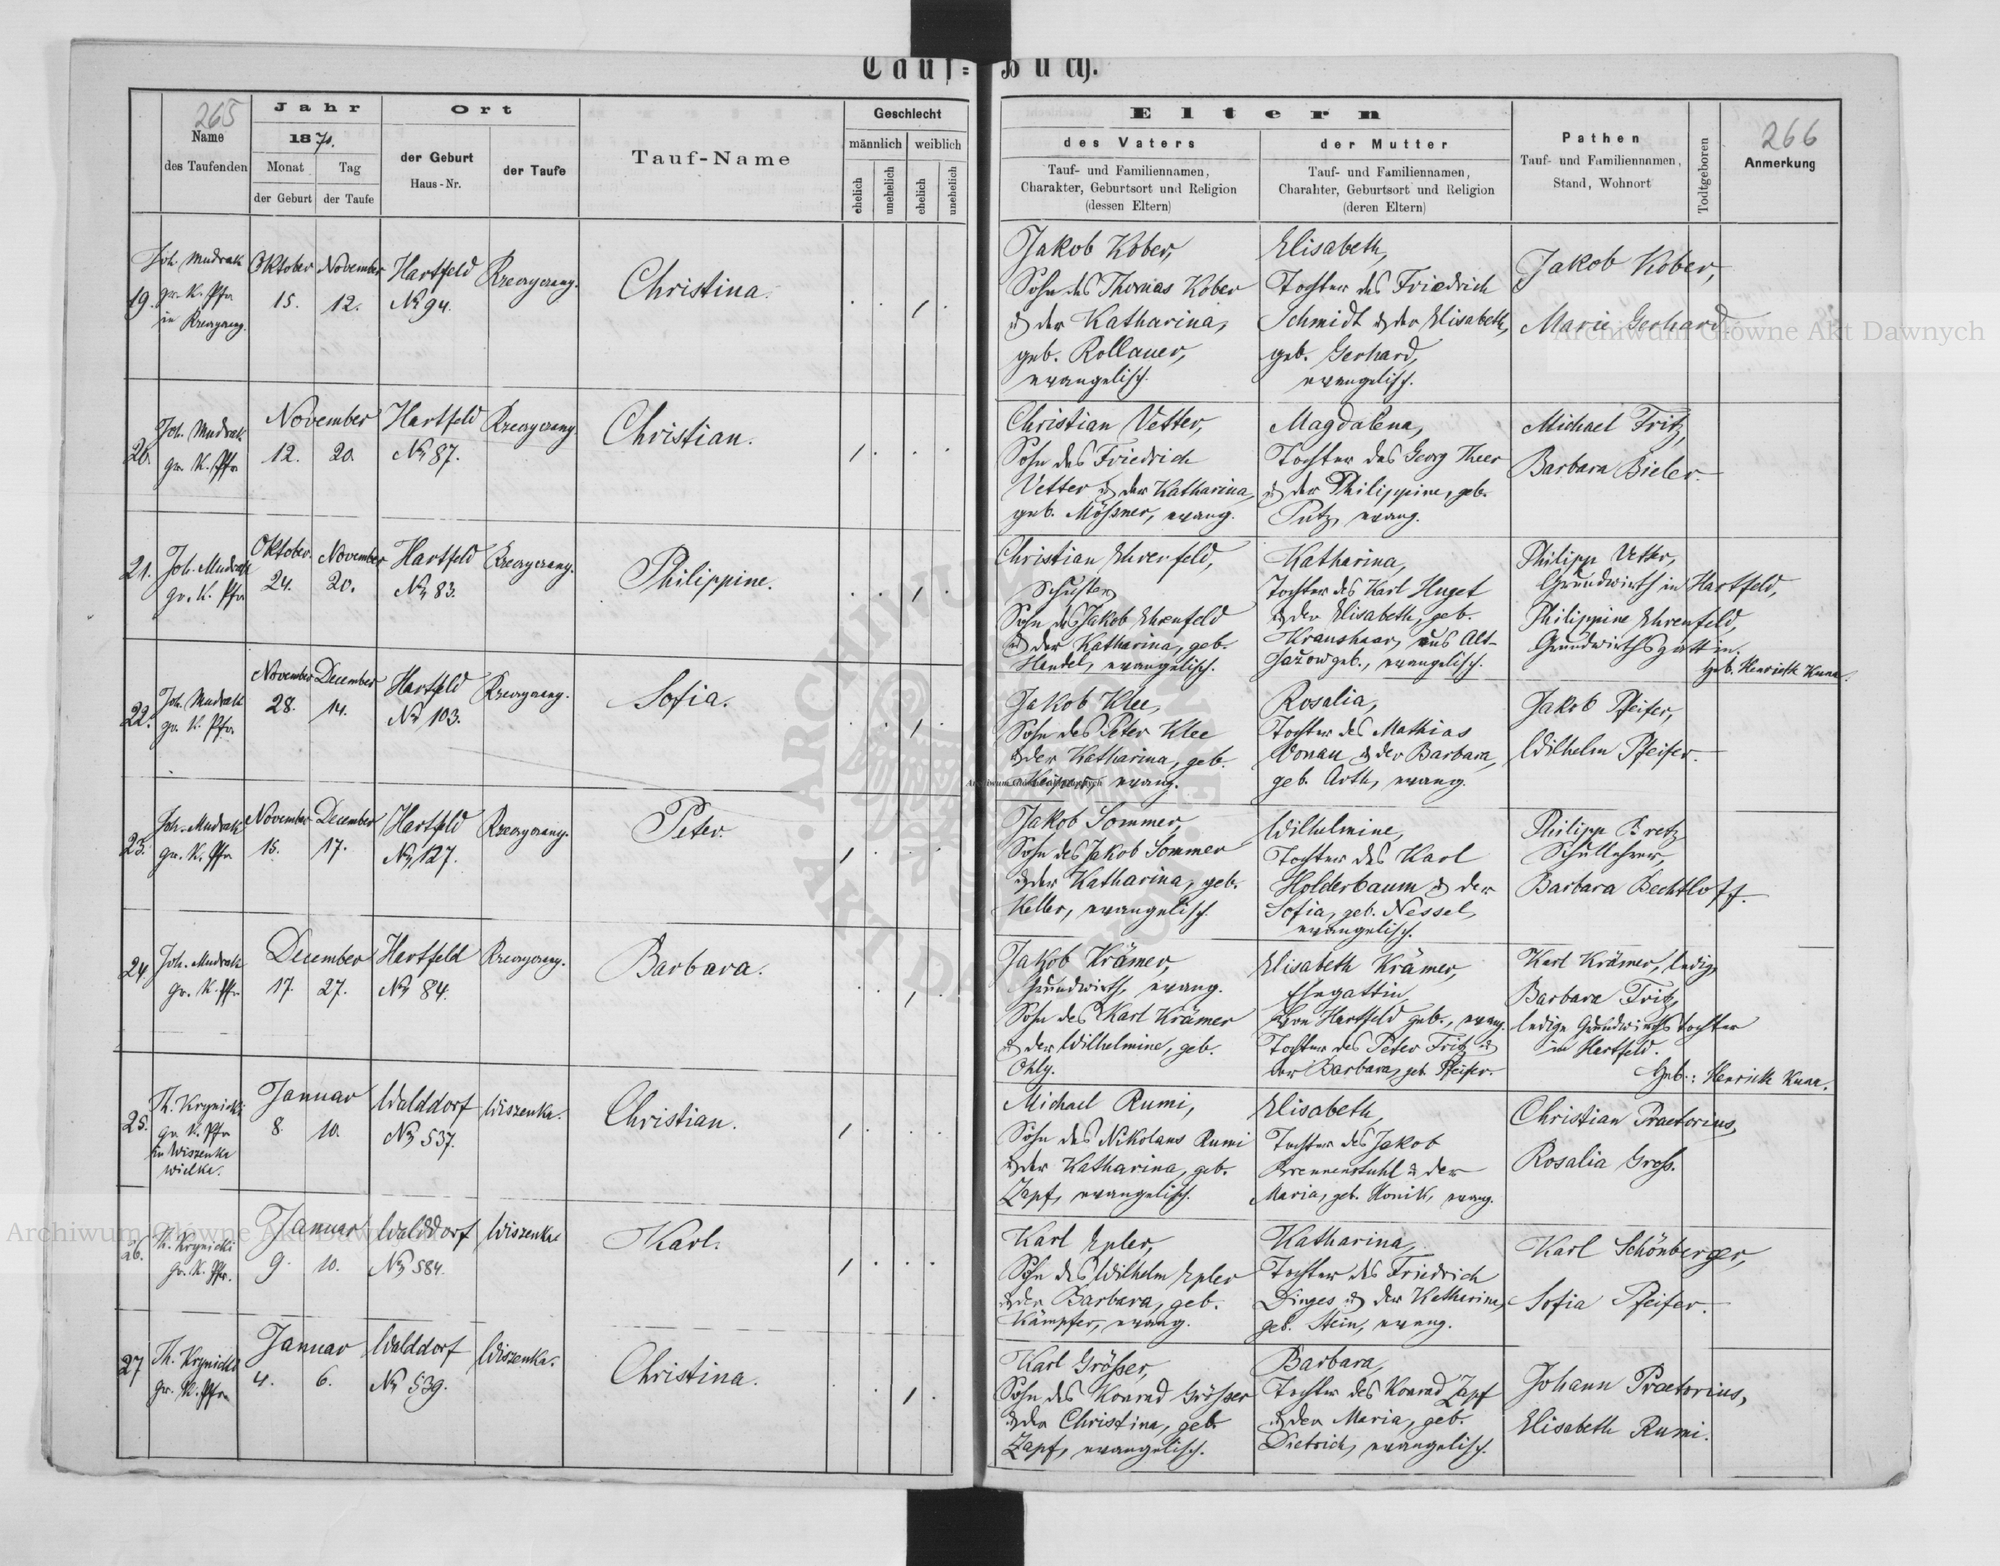 Tauf-Buch.
265
Name
des Taufenden
Jahr
1871.
Monat
der Geburt
Tag
der Taufe
Ort
der Geburt
Haus-Nr.
der Taufe
Tauf-Name
Geschlecht
männlich
weiblich
ehelich
unehelich
ehelich
unehelich
Eltern
des Vaters
Tauf- und Familiennamen,
Charakter, Geburtsort und Religion
(dessen Eltern)
der Mutter
Tauf- und Familiennamen,
Charakter, Geburtsort und Religion
(deren Eltern)
Pathen
Tauf- und Familiennamen,
Stand, Wohnort
Todtgeboren
266
Anmerkung
19.
Joh. Mudrak
gr. K. Pfr.
in
Oktober
15.
November
12.
Hartfeld
No 94.
Christina.
Jakob Kober,
Sohn des Thomas Kober
& der Katharina,
geb. Rollauer,
evangelisch.
Elisabeth,
Tochter des Friedrich
Schmidt & der Elisabeth,
geb. Gerhard,
evangelisch.
Jakob Kober,
Marie Gerhard
20.
Joh. Mudrak
gr. K. Pfr
November
12. 20.
Hartfeld
No 87.
Christian.
Christian Vetter,
Sohn des Friedrich
Vetter & der Katharina,
geb. Mößner, evang.
Magdalena,
Tochter des Georg Theer
& der Philippine, geb.
Putz, evang.
Michael Fritz,
Barbara Bieler.
21.
Joh. Mudrak
gr. K. Pfr
Oktober
24.
November
20.
Hartfeld
No 83.
Philippine.
Christian Ehrenfeld,
Schuster,
Sohn des Jakob Ehrenfeld
& der Katharina, geb.
Handel, evangelisch.
Katharina,
Tochter des Karl Huget
& der Elisabeth, geb.
Kraushaar, aus Alt-
Jażow geb., evangelisch.
Philipp Vetter,
Grundwirth in Hartfeld,
Philippine Ehrenfeld,
Grundwirthsgattin.
Heb. Henriette Kuna.
22.
Joh. Mudrak
gr. K. Pfr.
November
28.
December
14.
Hartfeld
No 103.
Sofia.
Jakob Klee,
Sohn des Peter Klee
& der Katharina, geb.
evang.
Rosalia,
Tochter des Mathias
Donau & der Barbara,
geb. Arth, evang.
Jakob Pfeifer,
Wilhelm Pfeifer.
23.
Joh. Mudrak
gr. K. Pfr
November
15.
December
17.
Hartfeld
No 127.
Peter.
Jakob Sommer,
Sohn des Jakob Sommer
& der Katharina, geb.
Keller, evangelisch.
Wilhelmine,
Tochter des Karl
Holderbaum & der
Sofia, geb. Nessel,
evangelisch.
Philipp Bretz
Schullehrer,
Barbara Bechtloff.
24.
Joh. Mudrak
gr. K. Pfr
December
17. 27.
Hartfeld
No 84.
Barbara.
Jakob Krämer,
Grundwirth, evang.
Sohn des Karl Krämer
& der Wilhelmine, geb.
Ohly.
Elisabeth Krämer,
Ehegattin
von Hartfeld geb., evang.
Tochter des Peter Fritz &
der Barbara, geb. Pfeifer.
Karl Krämer, ledig,
Barbara Fritz,
ledige Grundwirthstochter
in Hartfeld.
Heb.: Henriette Kuna.
25.
Th. Krynicki
gr. K. Pfr
in Wiszenka
wielka.
Januar
8. 10.
Walddorf
No 537.
Wiszenka.
Christian.
Michael Rumi,
Sohn des Nikolaus Rumi
& der Katharina, geb.
Zapf, evangelisch.
Elisabeth,
Tochter des Jakob
Brennenstuhl & der
Maria, geb. Honik, evang.
Christian Praetorius,
Rosalia Groß.
26.
Th. Krynicki
gr. K. Pfr.
Januar
9. 10.
Walddorf
No 584.
Wiszenka
Karl.
Karl Epler,
Sohn des Wilhelm Epler
& der Barbara, geb.
Kämpfer, evang.
Katharina,
Tochter des Friedrich
Dinges & der Katharina,
geb. Stein, evang.
Karl Schönberger,
Sofia Pfeifer.
27
Th. Krynicki
gr. K. Pfr
Januar
4. 6.
Walddorf
No 539.
Wiszenka.
Christina.
Karl Größer,
Sohn des Konrad Größer
& der Christina, geb.
Zapf, evangelisch.
Barbara,
Tochter des Konrad Zapf
& der Maria, geb.
Dietrich, evangelisch.
Johann Praetorius,
Elisabeth Rumi.
Archiwum Główne Akt Dawnych
Archiwum Główne Akt Dawnych